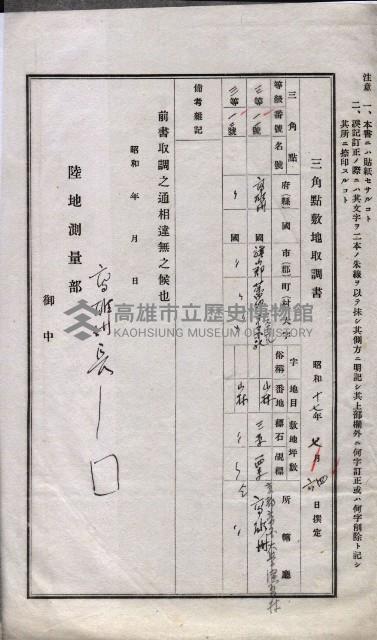 注意
一、本書ニハ貼紙セサルコト
二、誤記訂正ノ際ニハ其文字ヲ二本ノ朱線ヲ以テ抹シ其側方ニ明記シ其上部欄外ニ何字訂正或ハ何字削除ト記シ
其所ニ捺印スルコト
三角點敷地取調書
昭和十七年七月 日撰定
三角點
等級 番號 名號
府(縣) 國 市(郡) 町(村) 大字
字
俗稱
地目
番地
敷地坪數
標石 覘標
所轄廳
三等 一號 高雄州 國 山林 高雄州
三等 一號 〃 國 〃 山林 〃 〃 〃
備考雜記
前書取調之通相違無之候也
昭和 年 月 日
高雄州
陸地測量部 御中
高雄市立歷史博物館
KAOHSIUNG MUSEUM OF HISTORY